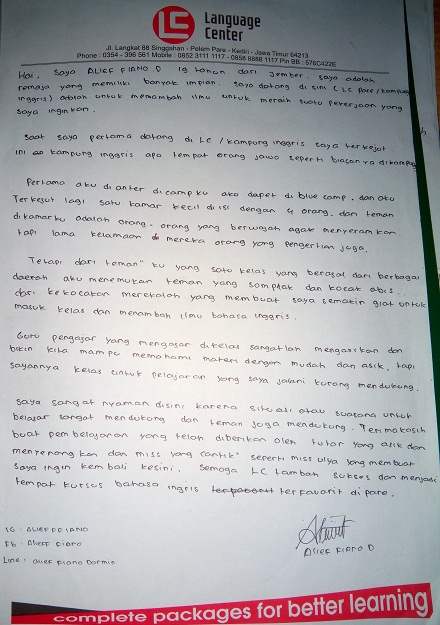 LC
Language
Center
Jl. Langkat 88 Singgahan - Pelem Pare - Kediri - Jawa Timur 64213
Phone : 0354 - 396 561 Mobile : 0852 3111 1117 - 0858 8888 1117 Pin BB : 576C422E
Hai, Saya ALIEF FIANO D 19 tahun dari Jember. saya adalah
remaja yang memiliki banyak impian. saya datang di sini (LC pare/kampung
inggris) adalah untuk menambah ilmu untuk meraih suatu pekerjaan yang
saya inginkan.
Saat saya pertama datang di LC / kampung inggris saya terkejut
ini kampung inggris apa tempat orang jawa seperti biasanya dikampung
Pertama aku dianter dicamp ku aku dapet di blue camp, dan aku
Terkejut lagi satu kamar kecil diisi dengan 4 orang, dan teman
dikamarku adalah orang-orang yang berwajah agak menyeramkan
tapi lama kelamaan mereka orang yang pengertian juga.
Tetapi dari teman" ku yang satu kelas yang berasal dari berbagai
daerah aku menemukan teman yang somplak dan kocak abis.
dari kekocakan merekalah yang membuat saya semakin giat untuk
masuk kelas dan menambah ilmu bahasa inggris.
Guru pengajar yang mengajar dikelas sangatlah mengasikan dan
bikin kita mampu memahami materi dengan mudah dan asik, tapi
sayannya kelas untuk pelajaran yang saya jalani kurang mendukung.
saya sangat nyaman disini karena situasi atau suasana untuk
belajar sangat mendukung dan teman juga mendukung. Termakasih
buat pembelajaran yang telah diberikan oleh tutor yang asik dan
menyenangkan dan miss yang cantik" seperti miss ulya yang membuat
saya ingin kembali kesini. Semoga LC tambah sukses dan menjadi
tempat kursus bahasa ingris terfavorit di pare.
IG : ALIEFFIANO
Fb : Alieff Fiano
Line : alief fiano Darmia
ALIEF FIANO D
complete packages for better learning